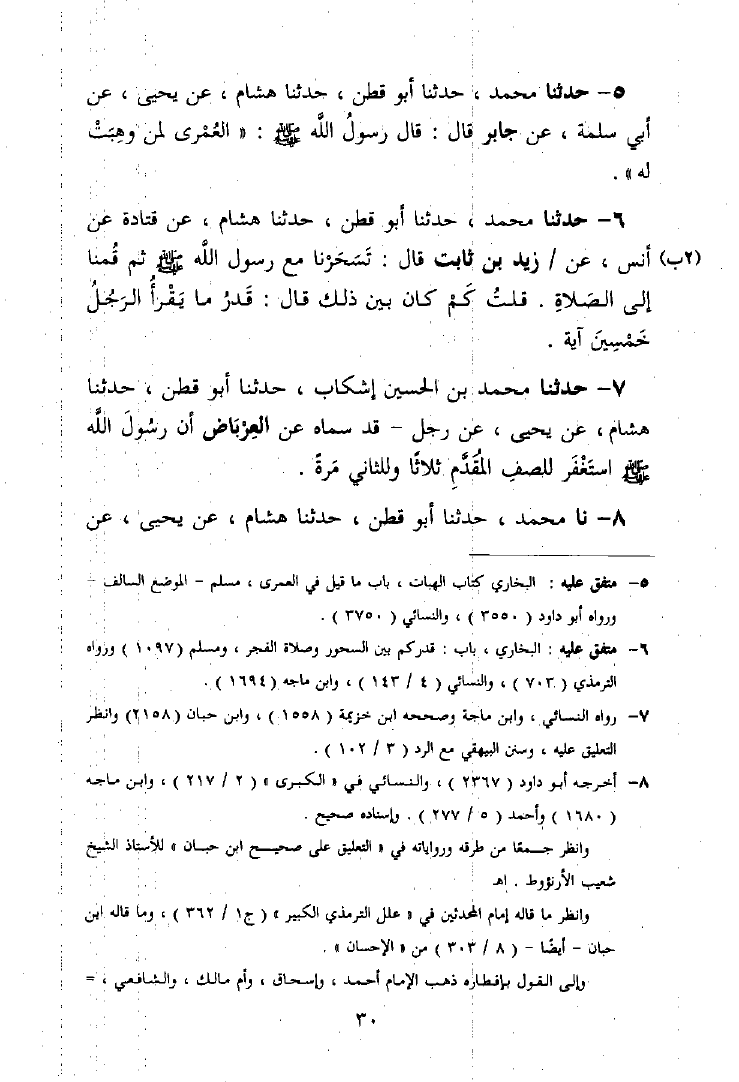 ٥- حدثنا محمد ، حدثنا أبو قطن ، حدثنا هشام ، عن يحيى ، عن
أبي سلمة ، عن جابر قال : قال رسولُ اللَّه ﷺ : « العُمْرى لمن وهِبَتْ
له » .
٦- حدثنا محمد ، حدثنا أبو قطن ، حدثنا هشام ، عن قتادة عن
(٢ب) أنس ، عن / زيد بن ثابت قال : تَسَحَرْنا مع رسول اللَّه ﷺ ثم قُمنا
إلى الصَلاةِ . قلتُ كَمْ كان بين ذلك قال : قَدرُ ما يَقْرأُ الرَجُلُ
خَمْسِينَ آية .
٧- حدثنا محمد بن الحسين إشكاب ، حدثنا أبو قطن ، حدثنا
هشام ، عن يحيى ، عن رجل - قد سماه عن العِرْبَاض أن رسُولَ اللَّه
ﷺ استَغْفَر للصفِ المُقَدَّمِ ثلاثًا وللثاني مَرةً .
٨- نا محمد ، حدثنا أبو قطن ، حدثنا هشام ، عن يحيى ، عن
٥- متفق عليه : البخاري كتاب الهبات ، باب ما قيل في العمرى ، مسلم - الموضع السالف -
ورواه أبو داود ( ٣٥٥٠ ) ، والنسائي ( ٣٧٥٠ ) .
٦- متفق عليه : البخاري ، باب : قدركم بين السحور وصلاة الفجر ، ومسلم (١٠٩٧ ) ورواه
الترمذي ( ٧٠٣ ) ، والنسائي ( ٤ / ١٤٣ ) ، وابن ماجه (١٦٩٤ ) .
٧- رواه النسائي ، وابن ماجة وصححه ابن خزيمة ( ١٥٥٨ ) ، وابن حبان (٢١٥٨) وانظر
التعليق عليه ، وسنن البيهقي مع الرد ( ٣ / ١٠٢ ) .
٨- أخرجه أبو داود ( ٢٣٦٧ ) ، والنسائي في « الكبرى » ( ٢ / ٢١٧ ) ، وابن ماجه
( ١٦٨٠ ) وأحمد ( ٥ / ٢٧٧ ) . وإسناده صحيح .
وانظر جـمعًا من طرقه ورواياته في « التعليق على صحيح ابن حبان » للأستاذ الشيخ
شعيب الأرنؤوط . اهـ
وانظر ما قاله إمام المحدثين في « علل الترمذي الكبير » ( ج١ / ٣٦٢ ) ، وما قاله ابن
حبان - أيضًا - ( ٨ / ٣٠٣ ) من « الإحسان » .
وإلى القول بإفطاره ذهب الإمام أحمد ، وإسحاق ، وأم مالك ، والشافعي ، =
٣٠